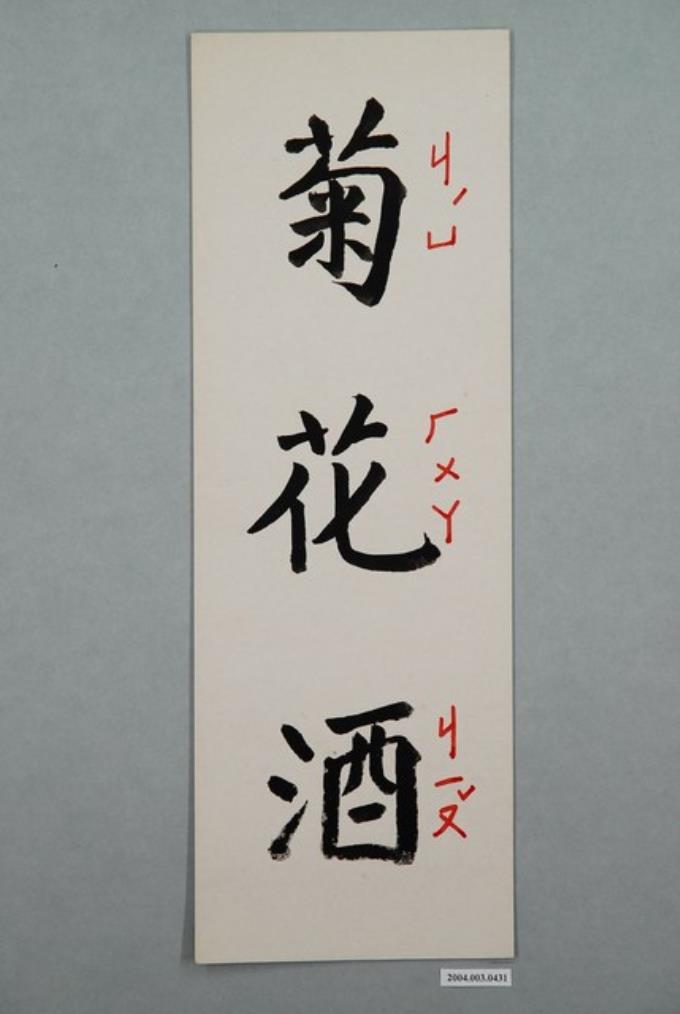 菊花酒
ㄐㄩˊ
ㄏㄨㄚ
ㄐㄧㄡˇ
2004.003.0431